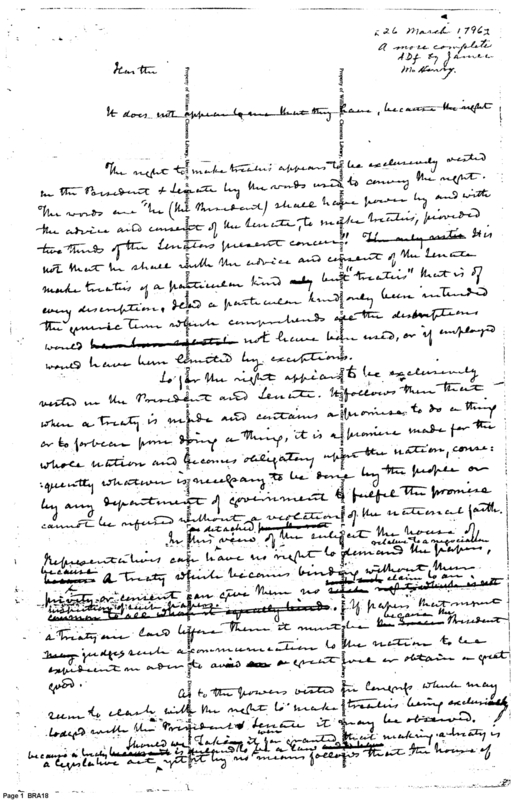 26 March 1796
A more complete
ADf by James
McHenry.
Dear Sir
It does not appear to me that they have, because the right
The right to make treaties appears to be exclusively vested
in the President & Senate by the words used to convey the right.
The words are "he (the President) shall have power by and with
the advice and consent of the Senate, to make treaties, provided
two thirds of the Senators present concur." It is
not that he shall with the advice and consent of the Senate
make treaties of a particular kind only but "treaties" that is of
every description. Had a particular kind only been intended
the generic term which comprehends all the descriptions
would not have been used, or if employed
would have been limited by exceptions.
So far the right appears to be exclusively
vested in the President and Senate. It follows then that
when a treaty is made and contains a promise to do a thing
or to forbear from doing a thing, it is a promise made for the
whole nation and becomes obligatory upon the nation, conse-
quently whatever is necessary to be done by the people or
by any department of government to fulfil the promise
cannot be refused without a violation of the national faith.
In this detached view of the subject the house of
Representatives can have no right to demand the papers,
relative to a negociation
because A treaty which becomes binding without their
privity or consent can give them no claim to an
inspection of such papers
If papers that respect
a treaty are laid before them it must be because the President
judges such a communication to the nation to be
expedient in order to avoid a great evil or obtain a great
good.
As to the powers vested in Congress which may
seem to clash with the right to make treaties being exclusively
lodged with the President & Senate it may be observed.
Should we take it for granted that making a treaty is
a legislative act, yet it by no means follows that the house of
Property of William Clements Library
Property of William Clements Library
Page 1 BRA18